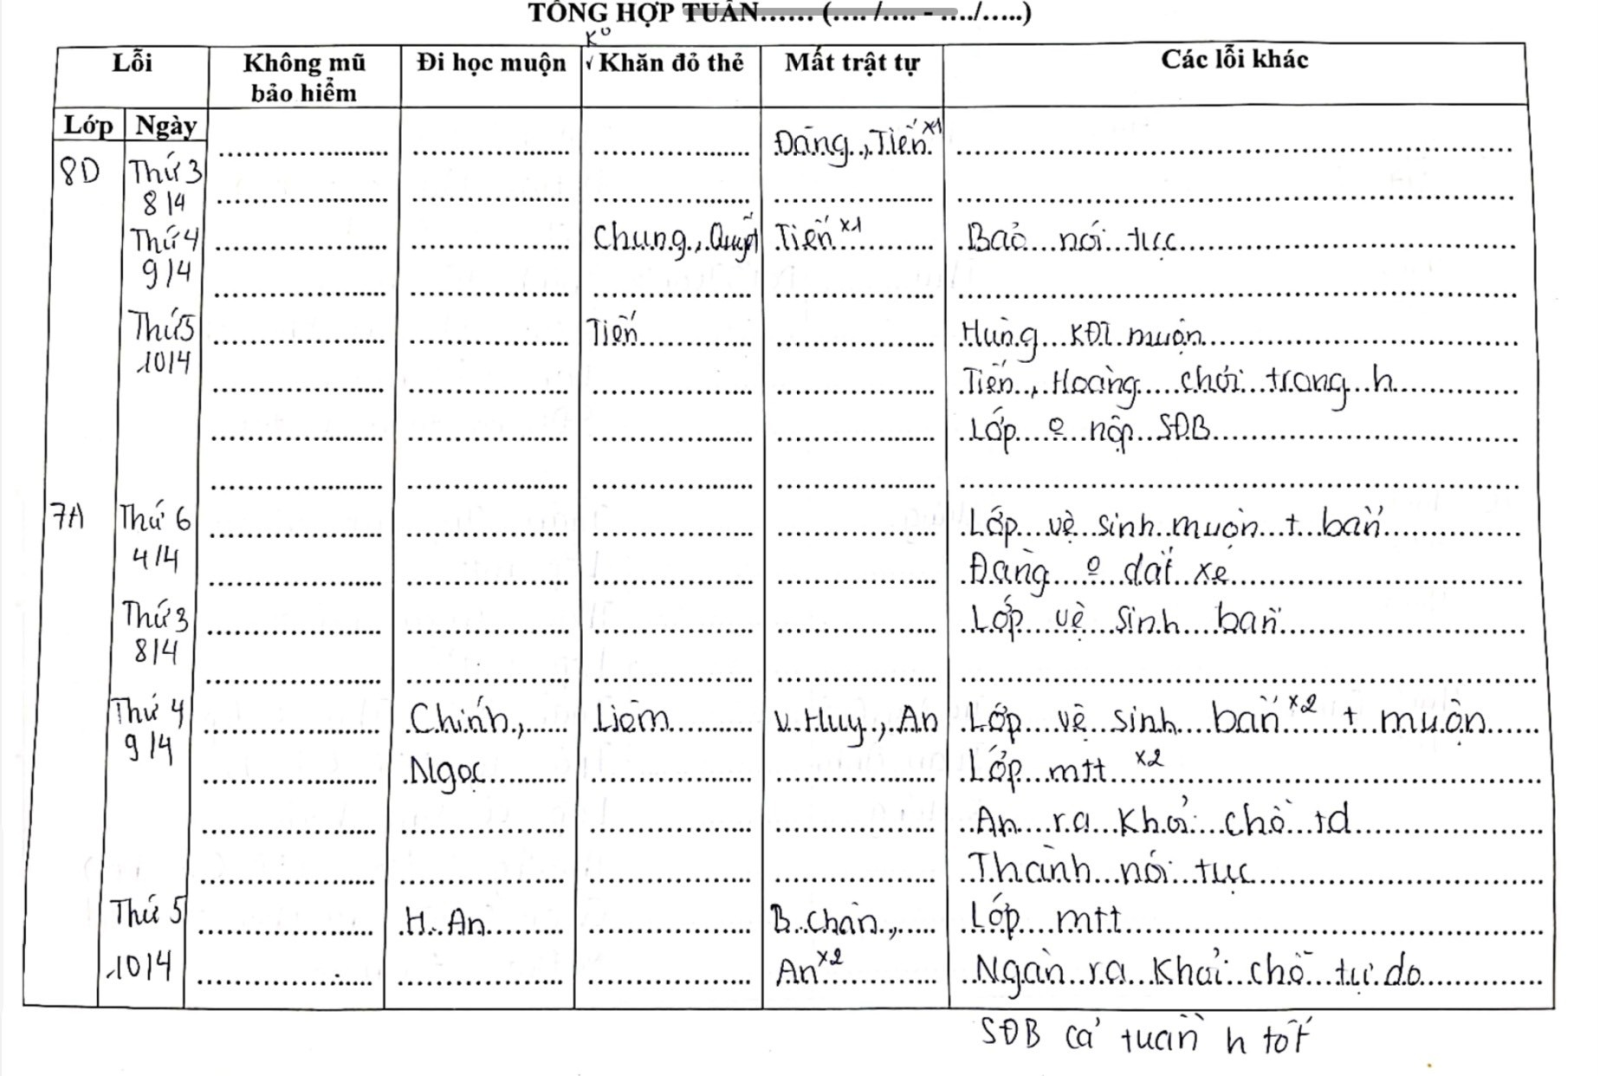 TỔNG HỢP TUẦN...... (.... /.... - ..../.....)
K°
Lỗi Không mũ bảo hiểm Đi học muộn Khăn đỏ thẻ Mất trật tự Các lỗi khác
Lớp Ngày
Đăng, Tiến x1
8D Thứ 3
8/4
Thứ 4 Chung, Quyết Tiến x1 Bảo nói tục
9/4
Thứ 5 Tiến Hùng KĐI muộn
10/4 Tiến, Hoàng chơi trong h
Lớp o nộp SĐB
7A Thứ 6 Lớp vệ sinh muộn + bẩn
4/4 Đăng o dắt xe
Thứ 3 Lớp vệ sinh bẩn
8/4
Thứ 4 Chính, Liêm V. Huy, An Lớp vệ sinh bẩn x2 + muộn
9/4 Ngọc Lớp mtt x2
An ra khỏi chỗ td
Thành nói tục
Thứ 5 H. An B. Chân, Lớp mtt
10/4 An x2 Ngân ra khỏi chỗ tự do
SĐB cả tuần h tốt